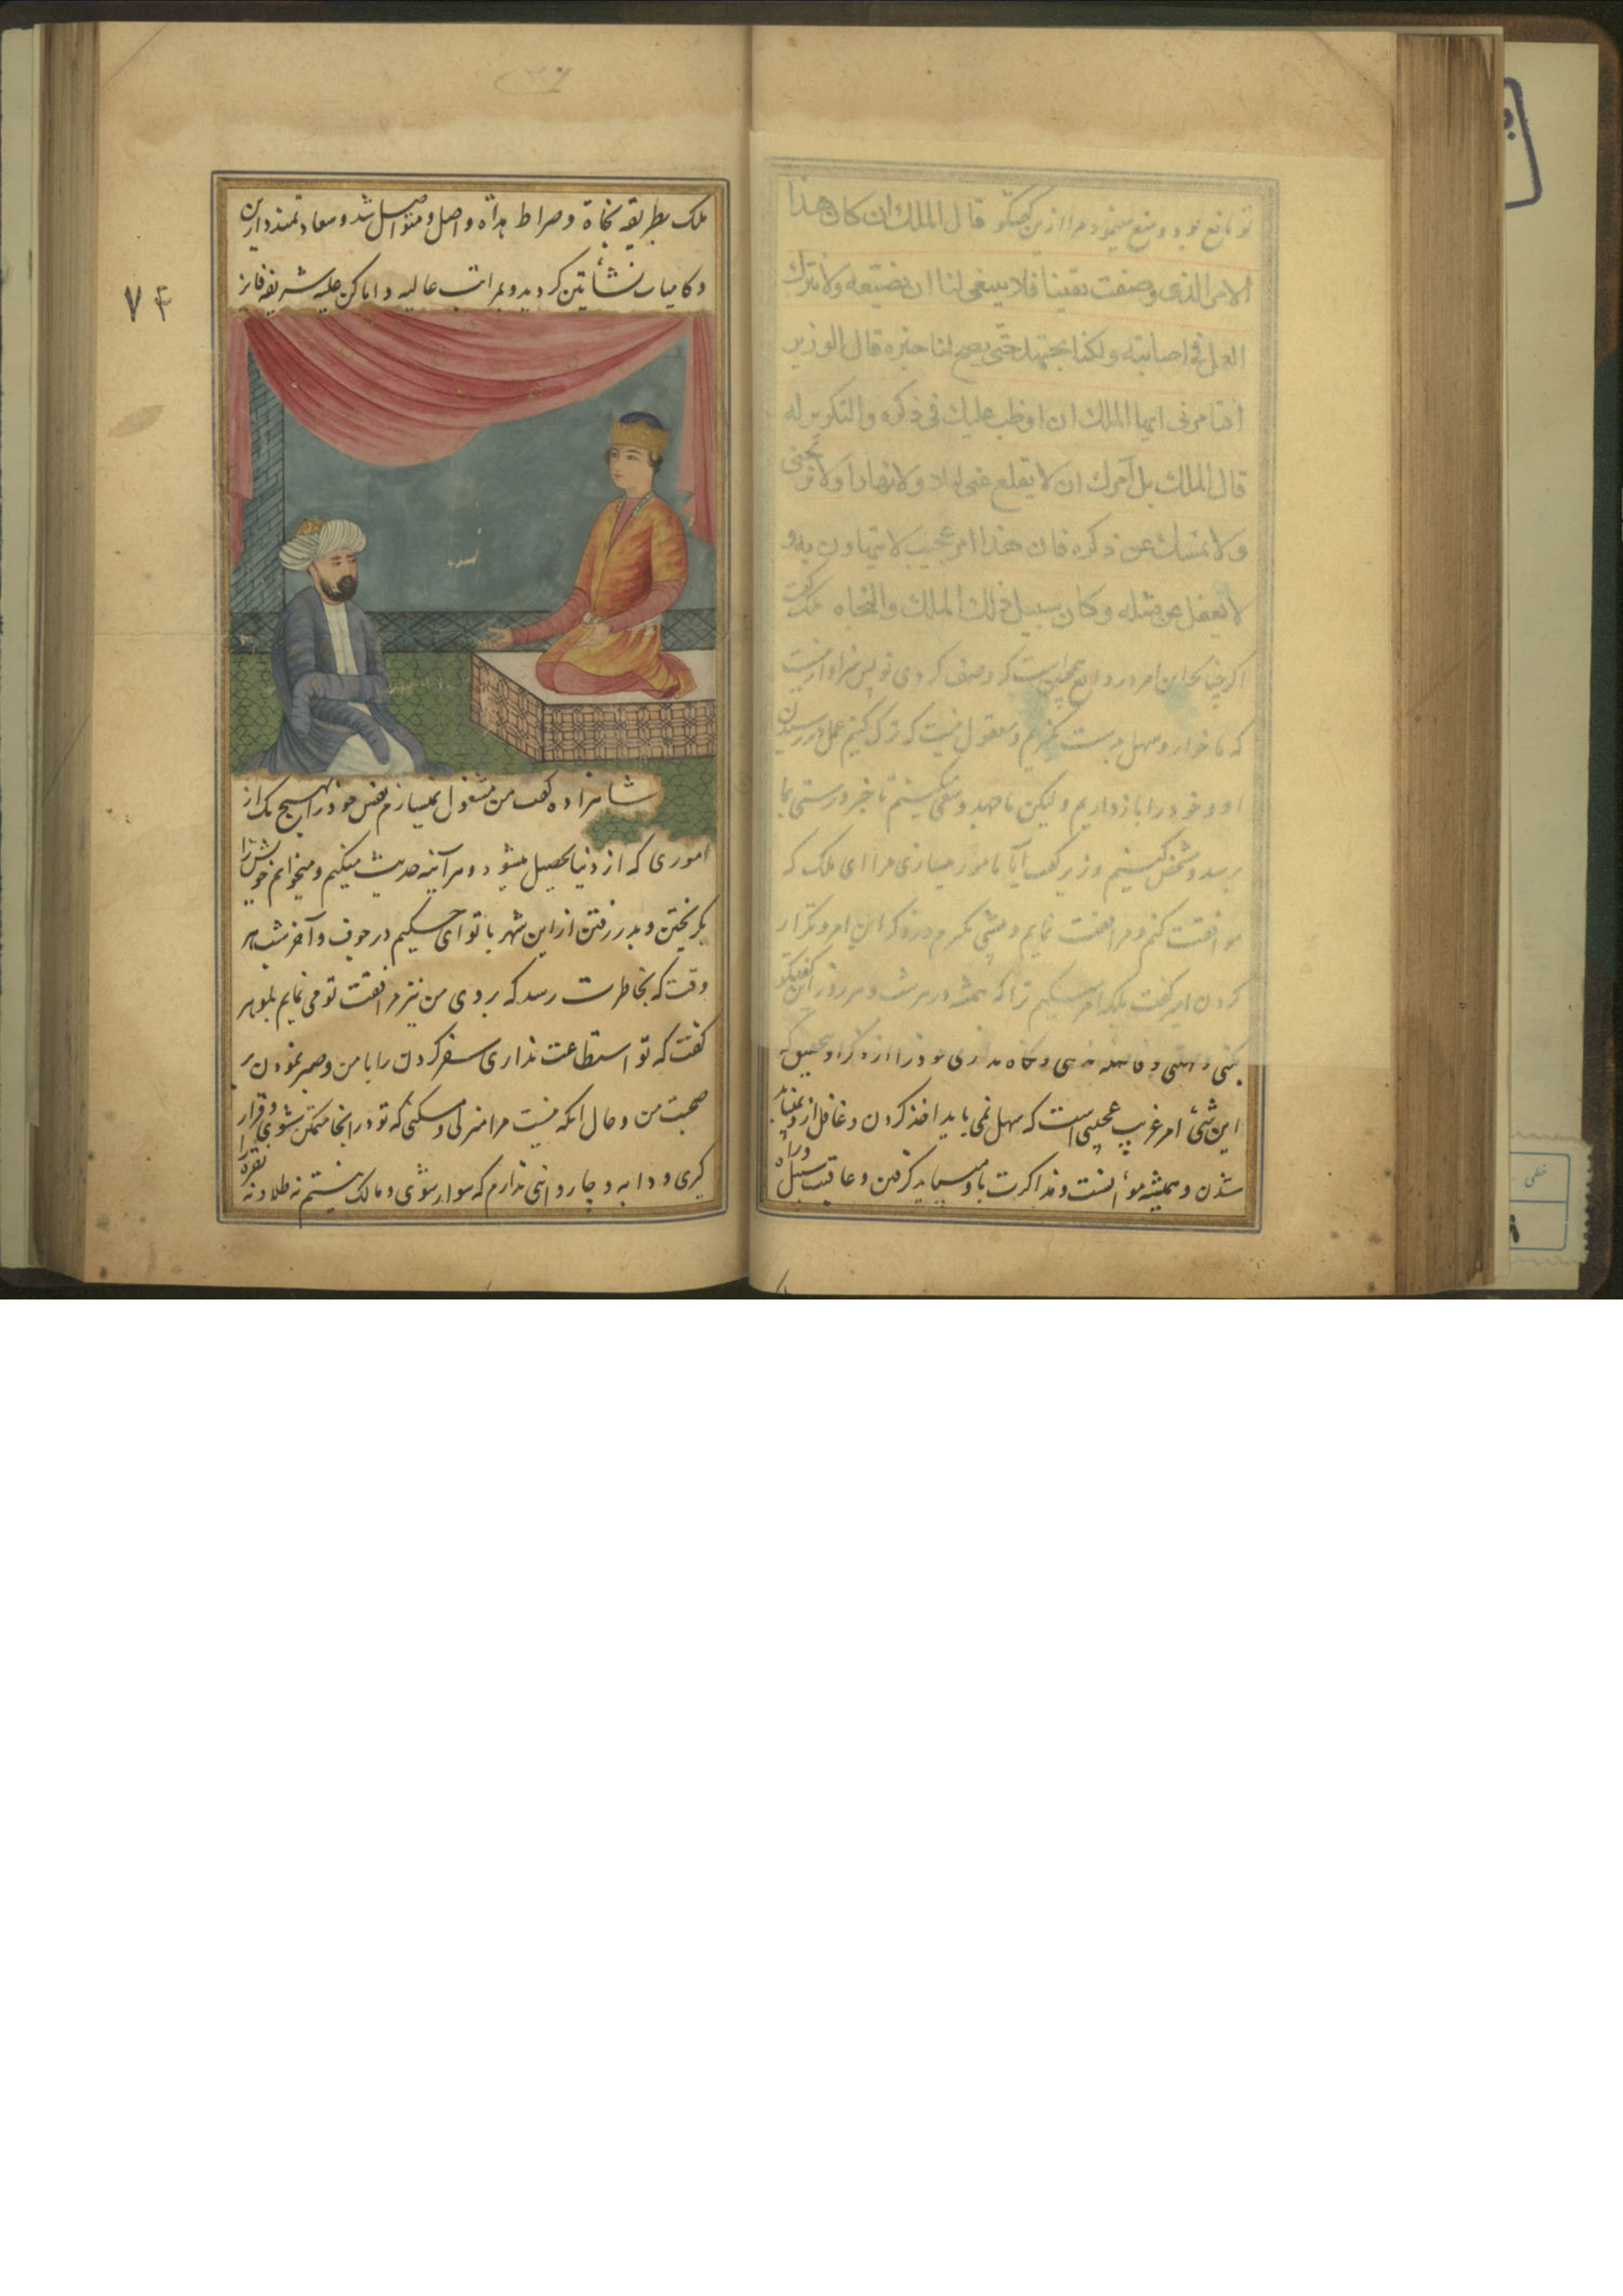 تو مانع بود و منع مینمود مرا ازین گفتگو قال الملك ان كان هذا
الامر الذی وصفت یقینا فلا ینبغی لنا ان نضیعه ولا نترك
العمل فی اصابته ولكنا نجتهد حتی یصح لنا خبره قال الوزیر
افتأمرنی ایها الملك ان اوظب علیك فی ذكره والتكریر له
قال الملك بل آمرك ان لا تقلع عنی لیلا ولا نهارا ولا تریحنی
ولا تمسك عن ذكره فان هذا امر عجیب لا یتهاون به و
لا یغفل عن مثله وكان سبیل ذلك الملك والنجاه ملک گفت
اگر چنانچه این امر در واقع چنان است که وصف کردی تو پس سزاوار نیست
که ما خوار و سهل و معقول نیست که ترک کنیم عمل در رسیدن
او و خود را باز داریم و لیکن ما جهد و سعی میکنیم تا خبر درستی بما
برسد و مشخص کنیم وزیر گفت آیا مامور میسازی مرا ای ملک که
موافقت کنم و مرافقت نمایم و در ذکر این امر و تکرار
کردن امیر گفت بلکه امر میکنیم ترا که همیشه در هر شب و هر روز این گفتگو
کنی و خود را از ذکر او بتحقیق که
این شئ امر غریب عجیبی است که سهل نمی باید اخذ کردن و غافل از او نمیباید
شدن و همیشه موانست و مذاکرت با او میباید گرفتن و عاقبت سبیل و راه
ملک بطریقه نجاة و صراط هداة واصل و متواصل شد و سعادتمند دارین
و کامیاب نشأتین کردید و بمراتب عالیه و اماکن جلیه شریفه فایز
۷۴
شاهزاده گفت من مشغول نمیسازم نفس خود را بهیچ یک از
اموری که از دنیا تحصیل میشود و هر آینه حدیث میکنم و میخوانم خویش را
بگریختن و بدر رفتن از این شهر با تو ای حکیم در جوف و آخر شب هر
وقت که بخاطرت رسد که بروی من نیز مرافقت تو می نمایم بلوهر
گفت که تو استطاعت نداری سفر کردن را با من و صبر نمودن بر
صحبت من و حال آنکه نیست مرا منزلی و مسکنی که تو در آنجا متمکن شوی و قرار
گیری و دابه و چاروائی ندارم که سوار شوی و مالک نیستم نه طلا و نه نقره را
خطی